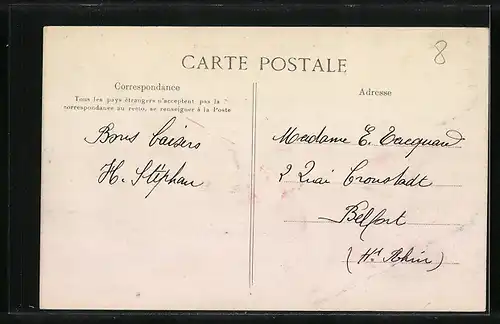 8
CARTE POSTALE
Correspondance
Tous les pays étrangers n'acceptent pas la
correspondance au recto, se renseigner à la Poste
Bons baisers
H. Stéphan
Adresse
Madame E. Tacquard
2 Quai Cronstadt
Belfort
(Ht Rhin)